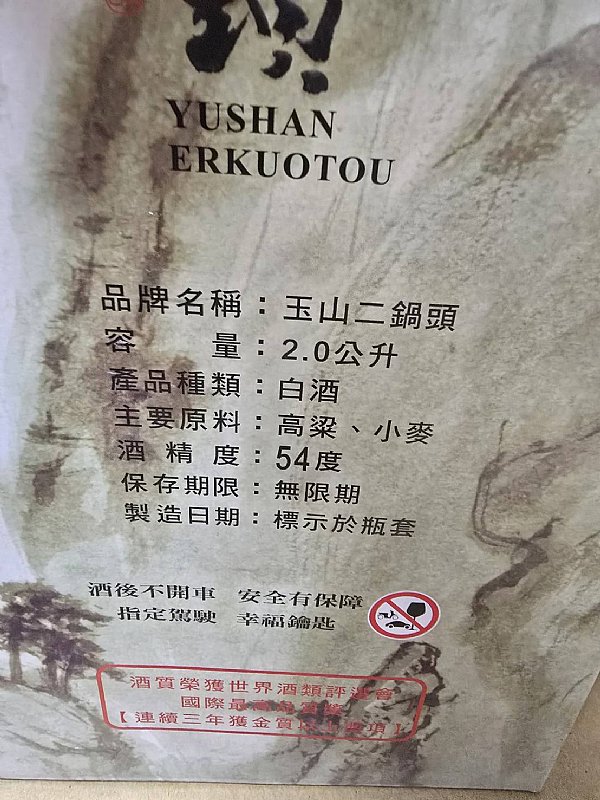 YUSHAN
ERKUOTOU
品牌名稱：玉山二鍋頭
容量：2.0公升
產品種類：白酒
主要原料：高粱、小麥
酒精度：54度
保存期限：無限期
製造日期：標示於瓶套
酒後不開車 安全有保障
指定駕駛 幸福鑰匙
酒質榮獲世界酒類評選會
國際最高品質獎
【連續三年獲金質